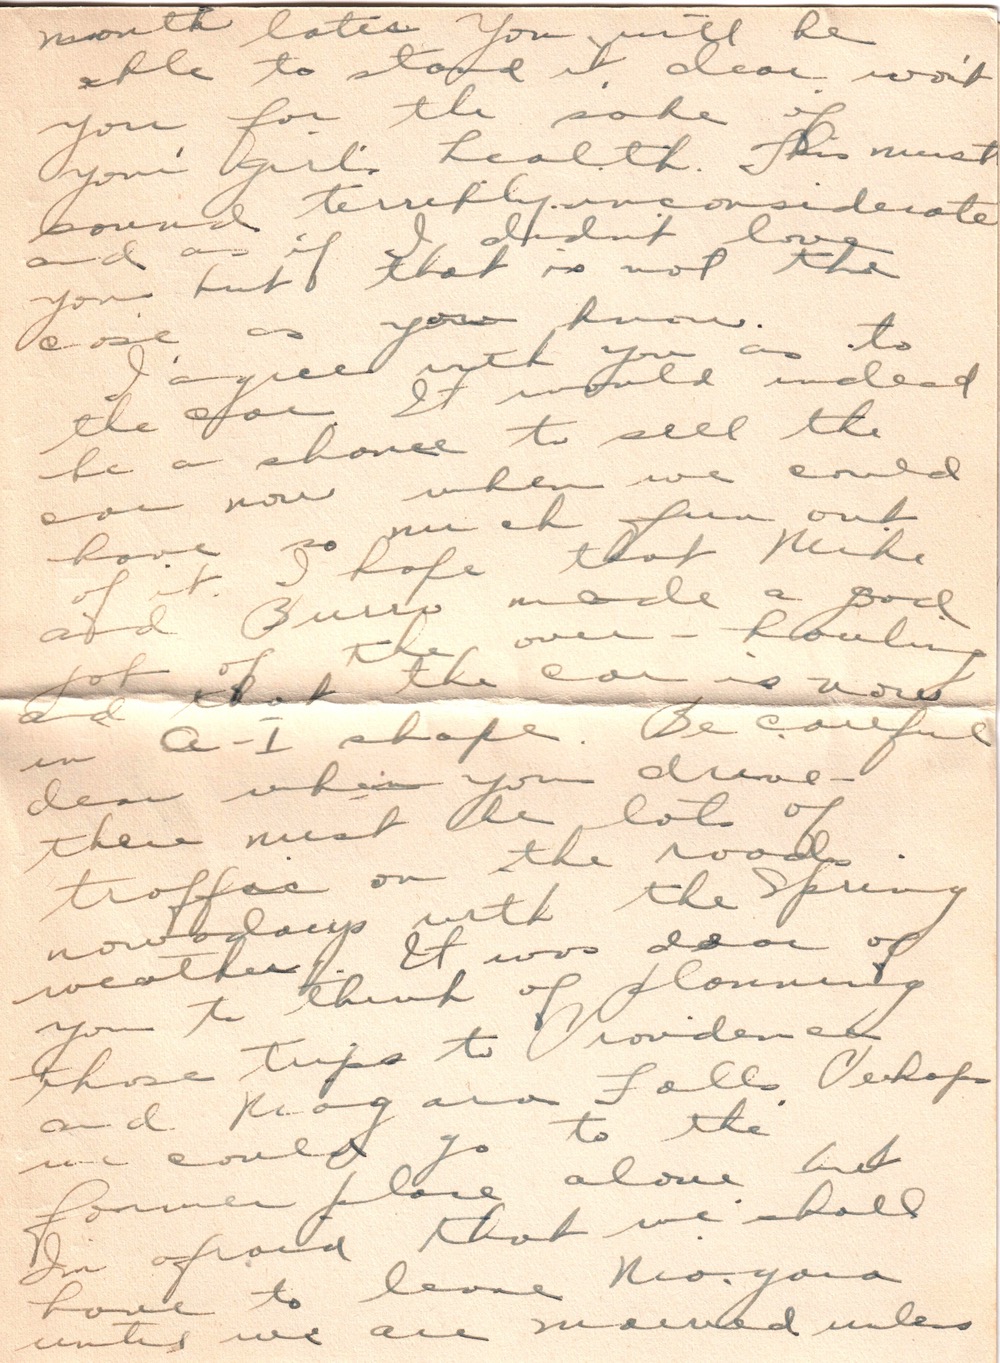 month later. You will be
able to stand it dear won't
you for the sake of
your girl's health. This must
sound terribly unconsiderate
and as if I didn't love
you but that is not the
case as you know.
I agree with you as to
the car. It would indeed
be a shame to sell the
car now when we could
have so much fun out
of it. I hope that Mike
and Burro made a good
job of the over-hauling
and that the car is now
in A-1 shape. Be careful
dear when you drive-
there must be lots of
traffic on the roads.
nowadays with the Spring
weather. It was dear of
you to think of planning
those trips to Providence
and Niagara Falls. Perhaps
we could go to the
former place alone but
I'm afraid that we shall
have to leave Niagara
until we are married unless